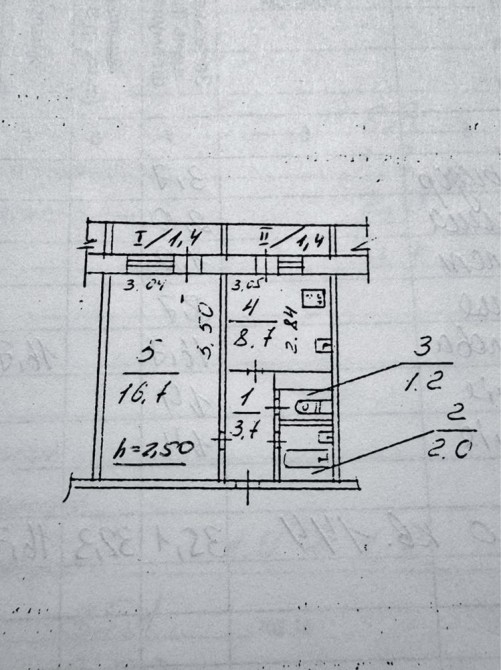 I/1,4
II/1,4
3,04
3,05
5,50
4
8,7
2,84
5
16,7
1
3,7
h=2,50
3
1.2
2
2.0